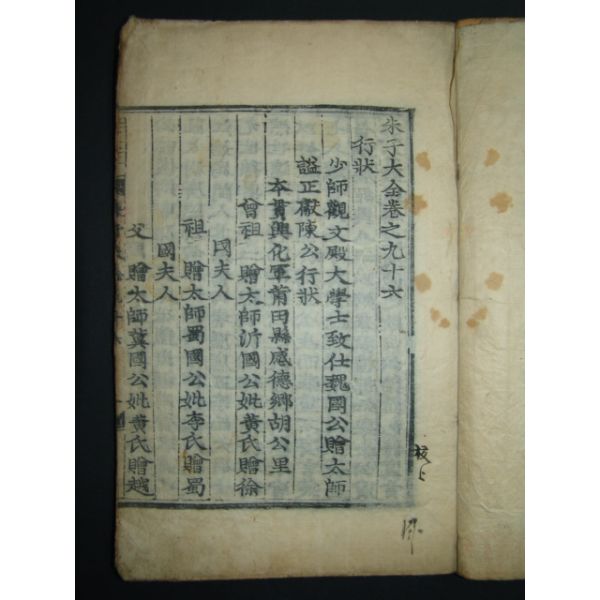 朱子大全卷之九十六
行狀
少師觀文殿大學士致仕魏國公贈太師
謚正獻陳公行狀
本貫興化軍莆田縣感德鄉胡公里
曾祖 贈太師沂國公妣黄氏贈徐
國夫人
祖 贈太師蜀國公妣李氏贈蜀
國夫人
父 贈太師冀國公妣黄氏贈越